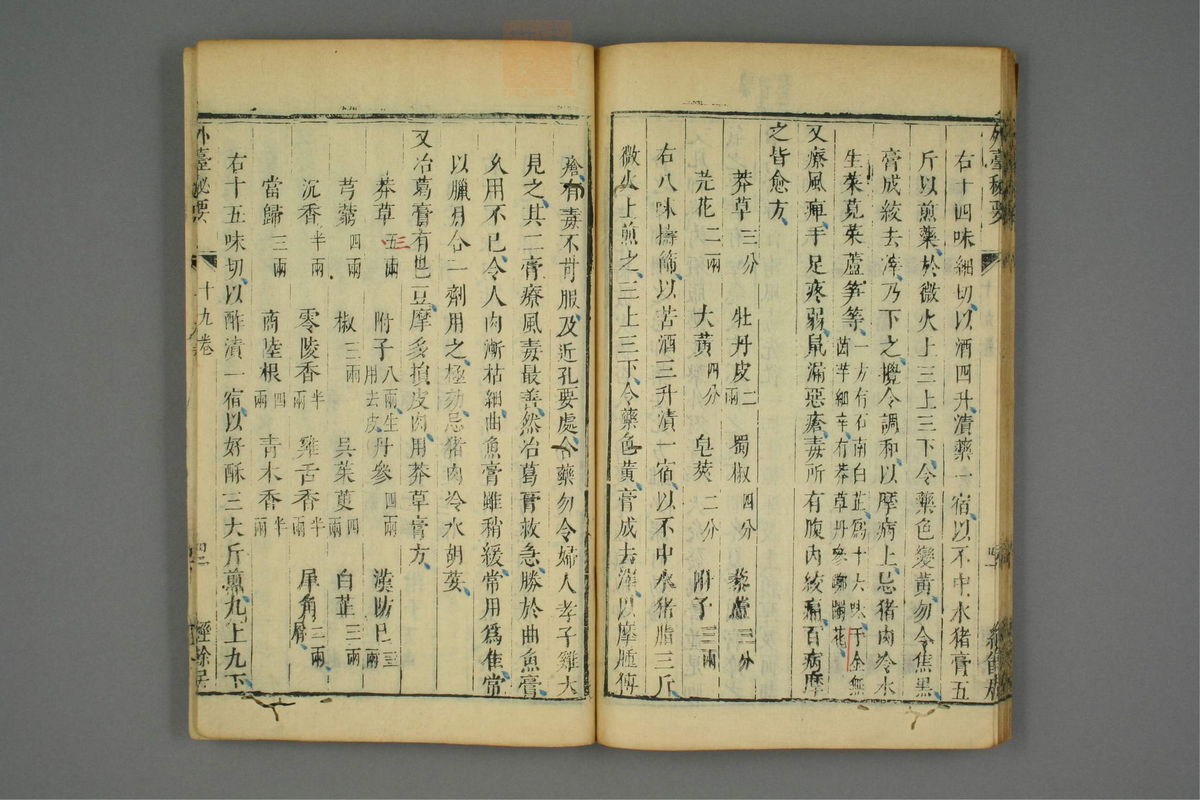 外臺秘要
右十四味細切以酒四升漬藥一宿以不中水猪膏五
斤以煎藥於微火上三上三下令藥色變黃勿令焦黑
膏成絞去滓乃下之攪令調和以摩病上忌猪肉冷水
生菜莧菜蘆笋等一方有石南白芷爲十六味千金無
茵芋細辛有莽草丹參躑躅花
又療風痺手足疼弱鼠漏惡瘡毒所有腹內絞痛百病摩
之皆愈方
莽草三分 牡丹皮二兩 蜀椒四分 藜蘆三分
芫花二兩 大黃四分 皂莢二分 附子三兩
右八味擣篩以苦酒三升漬一宿以不中水猪脂三斤
微火上煎之三上三下令藥色黃膏成去滓以摩腫傅
瘡有毒不可服及近孔要處合藥勿令婦人孝子雞犬
見之其二膏療風毒最善然冶葛膏救急勝於曲魚膏
久用不已令人肉漸枯細曲魚膏雖稍緩常用爲佳常
以臘月合一劑用之極効忌猪肉冷水胡荽
又冶葛膏有巴豆摩多損皮肉用莽草膏方
莽草五兩 三 附子八兩生用去皮 丹參四兩 漢防已三兩
芎藭四兩 椒三兩 吳茱萸四兩 白芷三兩
沉香半兩 零陵香半兩 雞舌香半兩 犀角二兩屑
當歸三兩 商陸根四兩 青木香半兩
右十五味切以酢漬一宿以好酥三大斤煎九上九下
外臺秘要 十九卷 經餘居